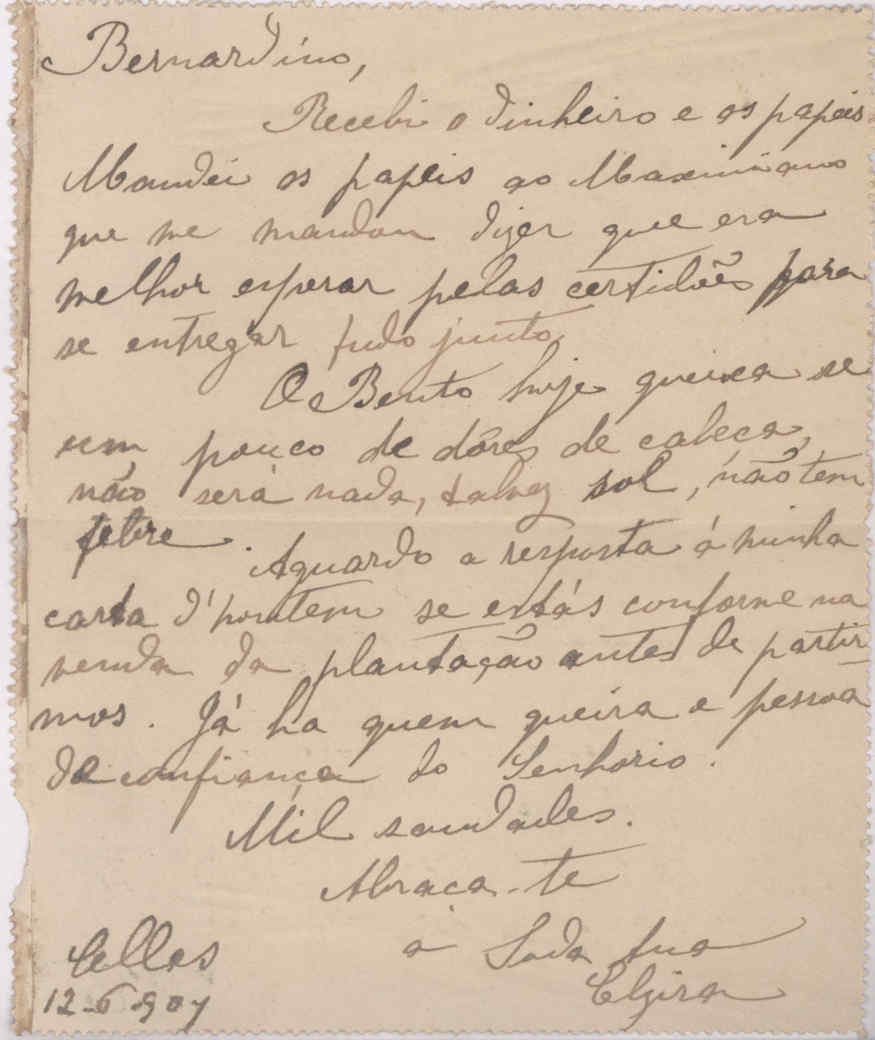 Bernardino,
Recebi o dinheiro e os papeis.
Mandei os papeis ao Maximiano
que me mandou dizer que era
melhor esperar pelas certidões para
se entregar tudo junto.
O Bento hoje queixa se
um pouco de dôres de cabeça,
não será nada, talvez sol, não tem
febre. Aguardo a resposta á minha
carta d'hontem se estás conforme na
venda da plantação antes de partir-
mos. Já ha quem queira e pessoa
de confiança do Senhorio.
Mil saudades.
Abraça-te
a Toda tua
Elzira
Cellas
12-6-907